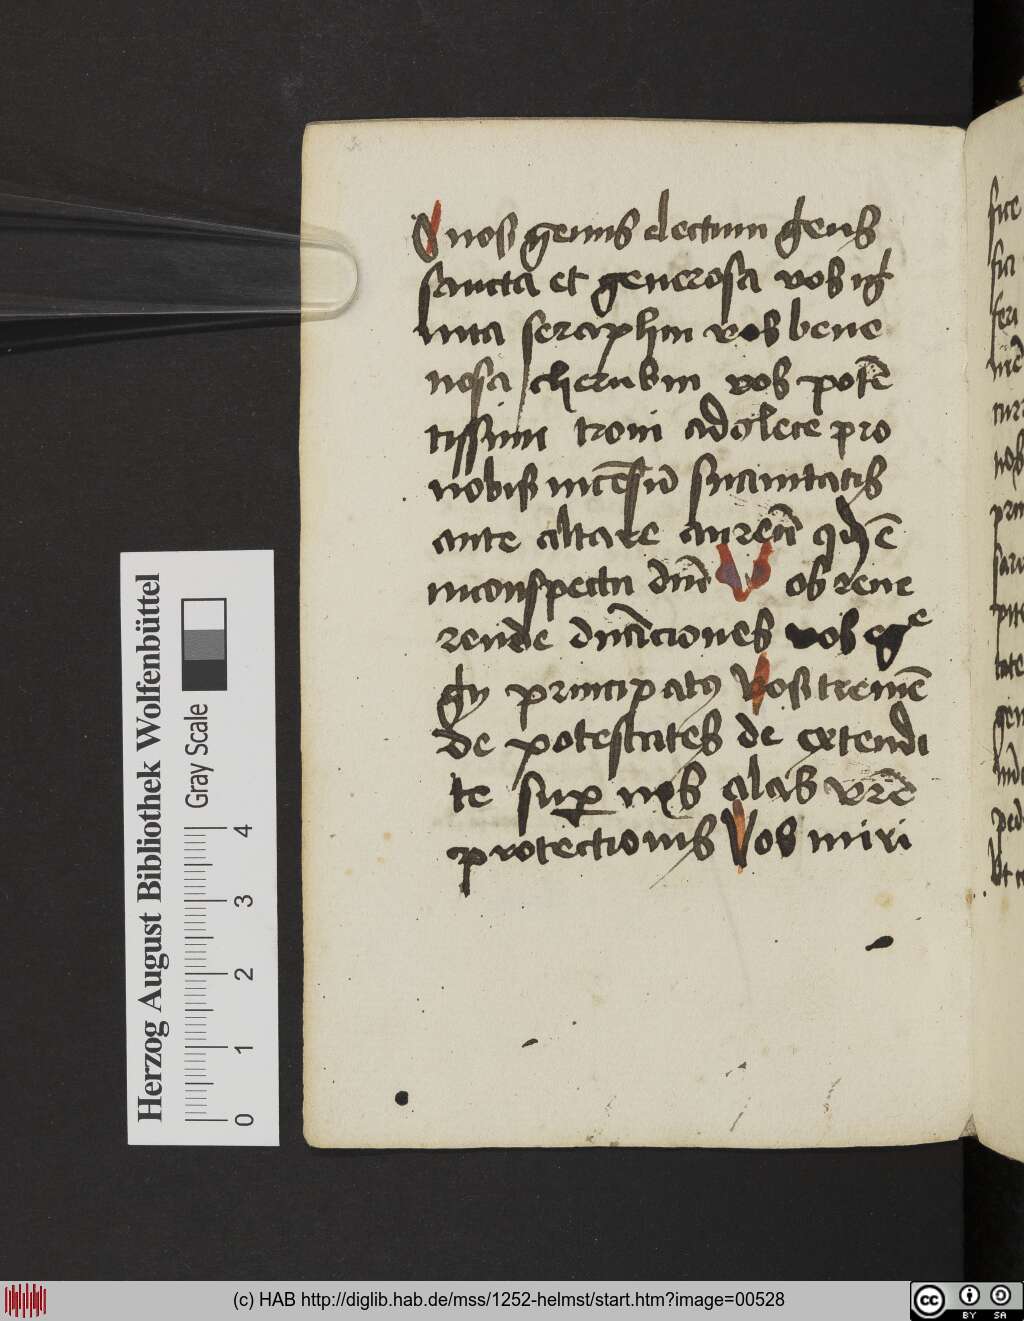 O uos genus electum gens
sancta et generosa vos ig̃
nita seraphin vos bene
uosa cherubin vos potē
tissimi troni adolete pro
nobis incēsū suauitatis
ante altare aureū qd̄ ē
inconspectu dn̄i Vos reue
rende dn̄aciones vos ege
gy principatꝯ Vos tremē
de potestates de extendi
te suꝑ nos alas vr̄e
protectionis Vos miri
Herzog August Bibliothek Wolfenbüttel
Gray Scale
0 1 2 3 4
(c) HAB http://diglib.hab.de/mss/1252-helmst/start.htm?image=00528
cc BY SA